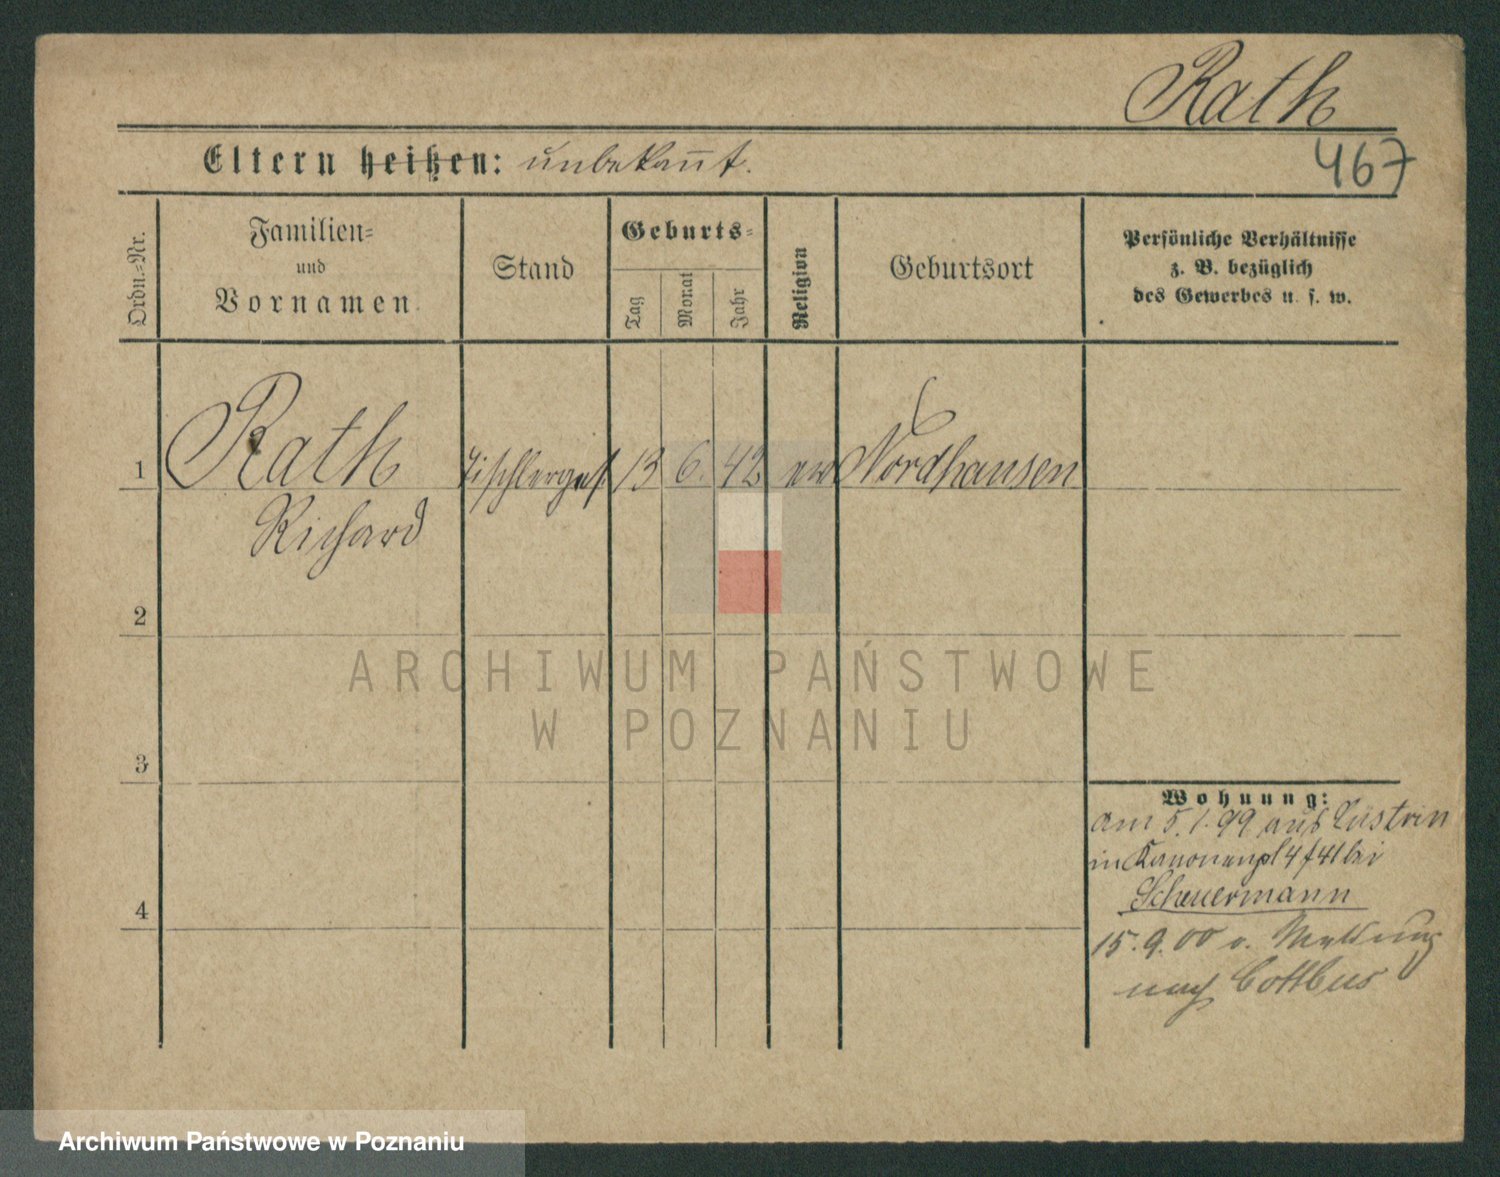 Rath
Eltern heißen: unbekannt.
467
Ordn.-Nr.
Familien-
und
Vornamen
Stand
Geburts-
Tag
Monat
Jahr
Religion
Geburtsort
Persönliche Verhältnisse
z. B. bezüglich
des Gewerbes u. s. w.
1
Rath
Tischlerges.
13
6.
42
ev
Nordhausen
Richard
2
ARCHIWUM PAŃSTWOWE
W POZNANIU
3
Wohnung:
am 5.1.99 aus Cüstrin
in Kanonenpl 4 f 41 bei
Scheuermann
15.9.00 o. Meldung
nach Cottbus
4
Archiwum Państwowe w Poznaniu